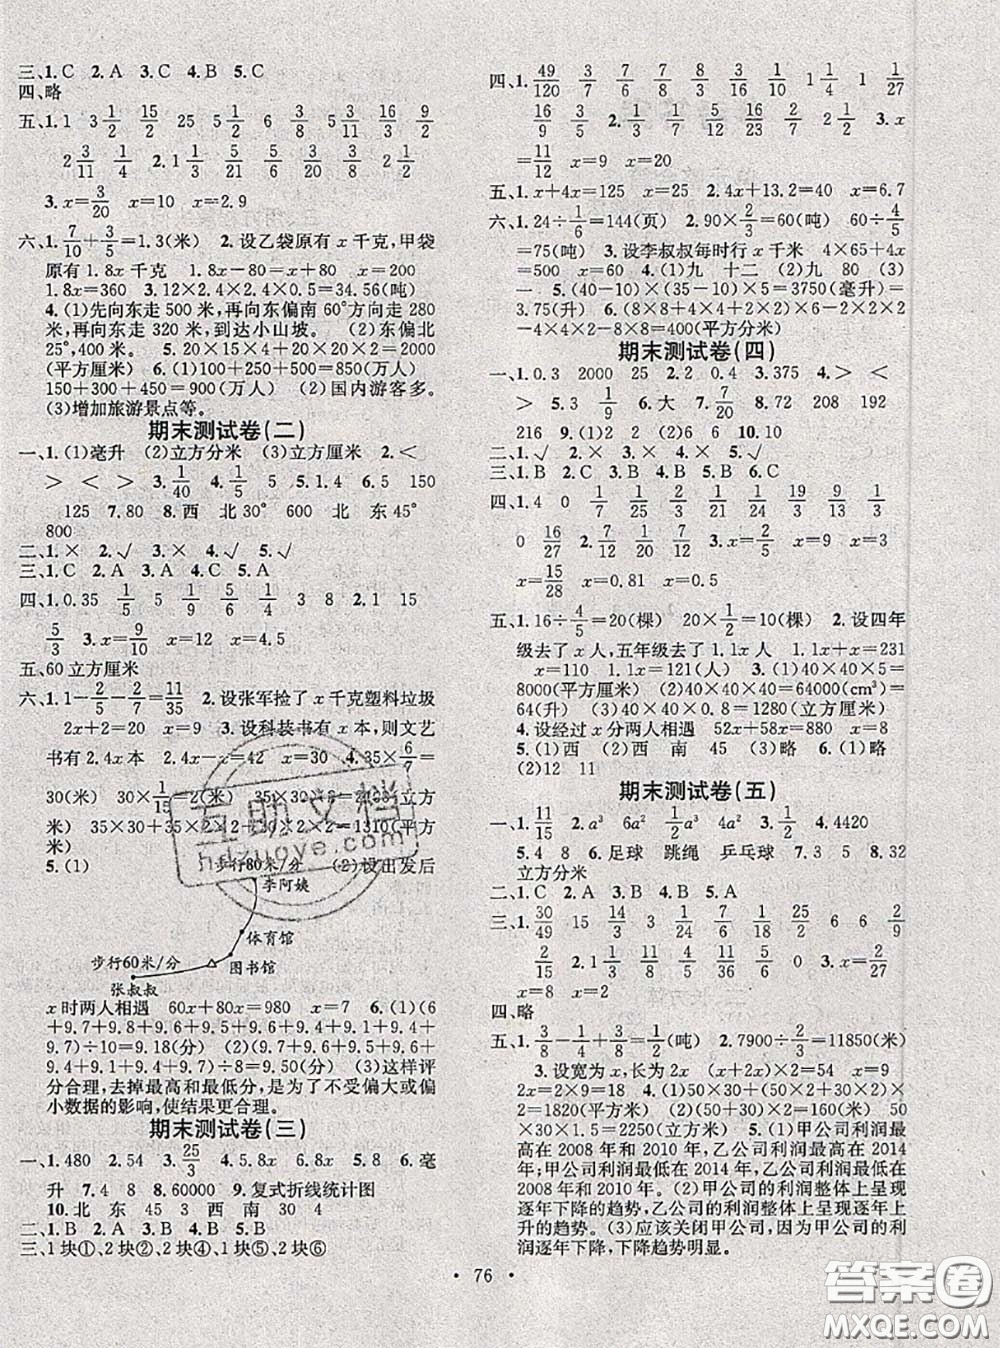 三、1.C 2.A 3.C 4.B 5.C
四、略
五、1.1 3 1/2 15/2 25 5 1/2 6 3/8 5 3/11 16/3 9/2
2 3/11 1/4 2.1 3/5 5/21 5/6 7/6 1/8
3.x=3/20 x=10 x=2.9
六、1. 7/10+3/5=1.3(米) 2.设乙袋原有x千克,甲袋
原有1.8x千克 1.8x-80=x+80 x=200
1.8x=360 3.12×2.4×2.4×0.5=34.56(吨)
4.(1)先向东走500米,再向东偏南60°方向走280
米,再向东走320米,到达小山坡。 (2)东偏北
25°,400米。 5.20×15×4+20×20×2=2000
(平方厘米) 6.(1)100+250+500=850(万人)
150+300+450=900(万人) (2)国内游客多。
(3)增加旅游景点等。
期末测试卷(二)
一、1.(1)毫升 (2)立方分米 (3)立方厘米 2.<
> < > 3. 1/40 4. 1/5 250 5.15 6.5 150
125 7.80 8.西 北30° 600 北 东45°
800
二、1.× 2.√ 3.× 4.√ 5.√
三、1.C 2.A 3.A 4.C 5.A
四、1.0.35 1/5 5 1/9 3/4 1/3 3 8 2.1 15
5/3 3.x=9/10 x=12 x=4.5
五、60立方厘米
六、1.1-2/5-2/7=11/35 2.设张军捡了x千克塑料垃圾
2x+2=20 x=9 3.设科装书有x本,则文艺
书有2.4x本 2.4x-x=42 x=30 4.35×6/7=
30(米) 30×1/15=2(米) 35×30×2=2100(立方
米) 35×30+35×2×2+30×2×2=1310(平方
米)
5.(1) 步行80米/分 (2)设出发后
李阿姨
体育馆
步行60米/分
图书馆
张叔叔
x时两人相遇 60x+80x=980 x=7 6.(1)(6
+9.7+9.8+9.5+9.6+9.4+9.5+9.4+9.4+
9.7)÷10=9.18(分) (2)(9.7+9.6+9.5+9.4
+9.7+9.5+9.4+9.4)÷8=9.5(分) (3)这样评分
合理,去掉最高和最低分,是为了不受偏大或偏
小数据的影响,使结果更合理。
期末测试卷(三)
一、1.480 2.54 3. 25/3 4.5.8x 6.8x 5.85 6.毫
升 7.4 8 8.60000 9.复式折线统计图
10.北 东 45 3 西 南 30 4
二、1.B 2.B 3.A 4.B 5.B
三、1块①,2块②,2块④,1块⑤,2块⑥
四、1. 49/120 3/7 7/6 7/8 5/3 8/7 1/4 1 1/27
16/9 5/3 2. 1/5 1/12 7/8 2/7 1/2 3.x=
11/12 x=9 x=20
五、1.x+4x=125 x=25 2.4x+13.2=40 x=6.7
六、1.24÷1/6=144(页) 2.90×2/3=60(吨) 60÷4/5
=75(吨) 3.设李叔叔每时行x千米 4×65+4x
=500 x=60 4.(1)九 十二 (2)九 80 (3)
一 5.(40-10)×(35-10)×5=3750(毫升)=
3.75(升) 6.(8×8+4×4+2×2)×6-2×2×2
-4×4×2-8×8=400(平方分米)
期末测试卷(四)
一、1.0.3 2000 25 2.2 0.4 3.375 4.> <
> 5.3 1/9 6.大 2/7 7.8 8.72 208 192
216 9.(2)6 6 2 10.10
二、1.√ 2.× 3.√ 4.× 5.√
三、1.B 2.B 3.C 4.B 5.C
四、1.4 0 1/7 1/25 5/4 3/8 1/24 19/3 9/4 13/9
0 16/27 2. 7/12 1/3 7/12 3.x=2/5 x=5/8
x=15/28 x=0.81 x=0.53
五、1.16÷4/5=20(棵) 20×1/2=10(棵) 2.设四年
级去了x人,五年级去了1.1x人 1.1x+x=231
x=110 1.1x=121(人) 3.(1)40×40×5=
8000(平方厘米) (2)40×40×40=64000(cm³)=
64(升) (3)40×40×0.8=1280(立方厘米)
4.设经过x分两人相遇 52x+58x=880 x=8
5.(1)西 (2)西 南 45 (3)略 6.(1)略
(2)12 11
期末测试卷(五)
一、1. 11/15 2.a³ 6a² 1/2a³ 4a² 3. 1/2 4.4420
5.4 8 6.足球 跳绳 乒乓球 7.5 8.32
立方分米
二、1.C 2.A 3.B 4.A 5.B
三、1. 30/49 15 14/15 3 3/4 15/8 1/20 6 6 2/9
1/40 2. 2/15 1/6 23/24 4/15 0 3.x=5/18
x=8 x=2
四、略
五、1. 3/8-1/4+3/8=1/2(吨) 2.7900÷2/3=11850(米)
3.设宽为x,长为2x (x+2x)×2=54 x=9
2x=2×9=18 4.(1)(50×50+50×30×2)×
2=1820(平方米) (2)(50+30)×2×(米) 50
×30×1.5=2250(立方米) 5.(1)甲公司利润最
高在2008年和2010年,乙公司利润最高在2014
年;甲公司利润最低在2014年,乙公司利润最低在
2008年和2010年。(2)甲公司的利润整体上呈现
逐年下降的趋势,乙公司的利润整体上呈现逐年上
升的趋势。 (3)应该关闭甲公司,因为甲公司的利
润逐年下降,下降趋势明显。
• 76 •
互助文档
hdzuoye.com
答案圈
MXQE.COM